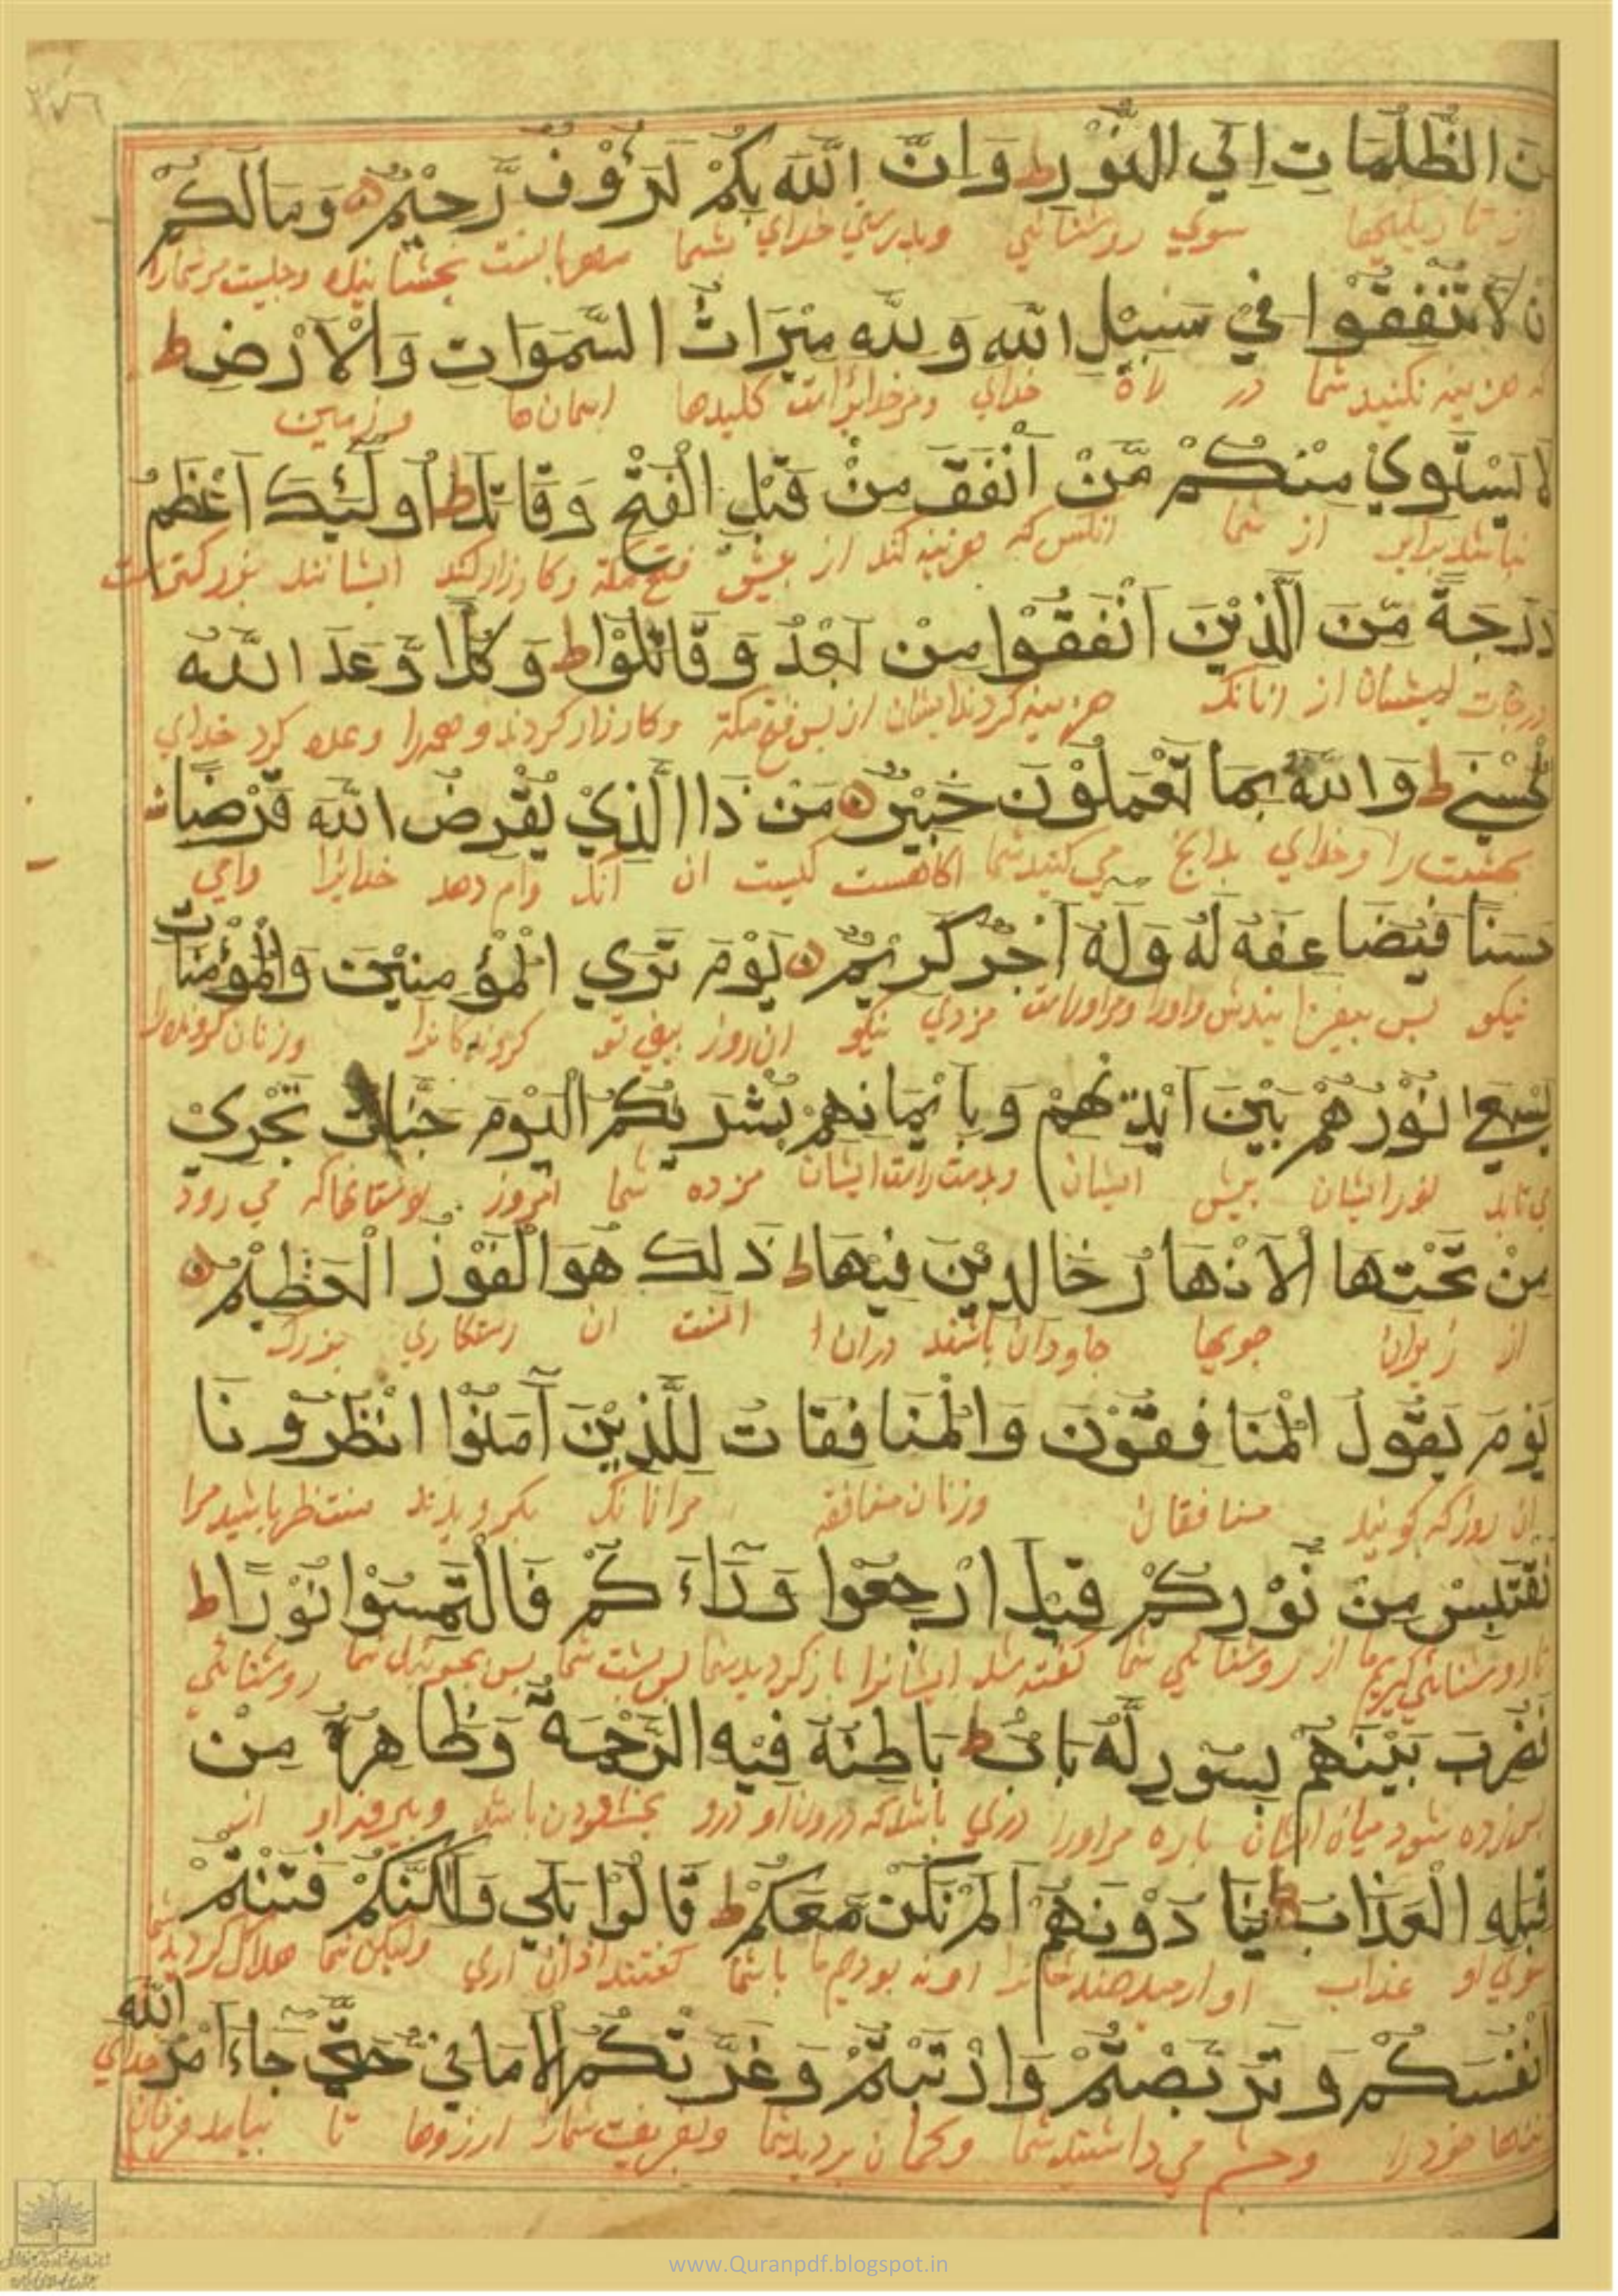 ن الظُّلُمَاتِ اِلَي النُّوْرِ ط وَ اِنَّ اللّٰهَ بِكُمْ لَرَءُوْفٌ رَّحِيْمٌ وَمَا لَكُمْ
سوي روشنائي وبدرستي خداي بشما مهربانست بخشاينده وچيست مرشمارا
ن لَا تُنْفِقُوْا فِيْ سَبِيْلِ اللّٰهِ وَ لِلّٰهِ مِيْرَاثُ السَّمٰوَاتِ وَالْاَرْضِ ط
كه هزينه نكنيد شما در راه خداي ومرخدايراست كليدها اسمان ها و زمين
لَا يَسْتَوِيْ مِنْكُمْ مَّنْ اَنْفَقَ مِنْ قَبْلِ الْفَتْحِ وَ قَاتَلَ ط اُولٰئِكَ اَعْظَمُ
نباشد برابر از شما انكس كه هزينه كند از پيش فتح مكة وكارزار كند ايشانند بزركترست
دَرَجَةً مِّنَ الَّذِيْنَ اَنْفَقُوْا مِنْ بَعْدُ وَ قَاتَلُوْا ط وَ كُلًّا وَّعَدَ اللّٰهُ
درجات ايشان از انانك هزينه كردند ايشان از پس فتح مكة وكارزار كردند و همه را وعده كرد خداي
لْحُسْنٰي ط وَاللّٰهُ بِمَا تَعْمَلُوْنَ خَبِيْرٌ مَنْ ذَا الَّذِيْ يُقْرِضُ اللّٰهَ قَرْضًا
بهشت را و خداي بدانچ مي كنيد شما اكاهست كيست ان انك وام دهد خدايرا وامي
حَسَنًا فَيُضَاعِفَهُ لَهُ وَ لَهُ اَجْرٌ كَرِيْمٌ يَوْمَ تَرَي الْمُؤْمِنِيْنَ وَالْمُؤْمِنَاتِ
نيكو پس بيفزايندش واورا ومراوراست مزدي نيكو ان روز بيني تو كرونده كانرا وزنان كرونده را
يَسْعٰي نُوْرُهُمْ بَيْنَ اَيْدِيْهِمْ وَ بِاَيْمَانِهِمْ بُشْرٰيكُمُ الْيَوْمَ جَنَّاتٌ تَجْرِيْ
مي تابد نور ايشان پيش ايشان وبدست راست ايشان مزده شما امروز بوستانهاكه مي رود
مِنْ تَحْتِهَا الْاَنْهَارُ خَالِدِيْنَ فِيْهَا ط ذٰلِكَ هُوَ الْفَوْزُ الْعَظِيْمُ
از زيران جويها جاودان باشند دران انست ان رستكاري بزرك
يَوْمَ يَقُوْلُ الْمُنَافِقُوْنَ وَالْمُنَافِقَاتُ لِلَّذِيْنَ آمَنُوْا انْظُرُوْنَا
ان روزكه كويند منافقان وزنان منافقه مرانانك بكرويدند منتظر باشيد مرا
نَقْتَبِسْ مِنْ نُّوْرِكُمْ قِيْلَ ارْجِعُوْا وَرَاءَ كُمْ فَالْتَمِسُوْا نُوْرًا ط
تا روشنائي كيريم ما از روشنائي شما كفته شد ايشانرا باز كرديد شما پس پشت شما پس بجوئيد شما روشنائي
فَضُرِبَ بَيْنَهُمْ بِسُوْرٍ لَّهُ بَابٌ ط بَاطِنُهُ فِيْهِ الرَّحْمَةُ وَظَاهِرُهُ مِنْ
پس زده شود ميان ايشان باره مراورا دري باشدكه درون او درو بخشودن باشد وبيرون او از
قِبَلِهِ الْعَذَابُ ط يُنَادُوْنَهُمْ اَلَمْ نَكُنْ مَّعَكُمْ ط قَالُوْا بَلٰي وَلٰكِنَّكُمْ فَتَنْتُمْ
سوي او عذاب با شما كفتند اري وليكن شما هلاك كرديد
اَنْفُسَكُمْ وَ تَرَبَّصْتُمْ وَارْتَبْتُمْ وَغَرَّتْكُمُ الْاَمَانِيُّ حَتّٰي جَاءَ اَمْرُ اللّٰهِ
خودرا وچشم مي داشتيد شما وكمان برديد شما وبفريفت شمارا ارزوها تا بيامد فرمان خداي
www.Quranpdf.blogspot.in